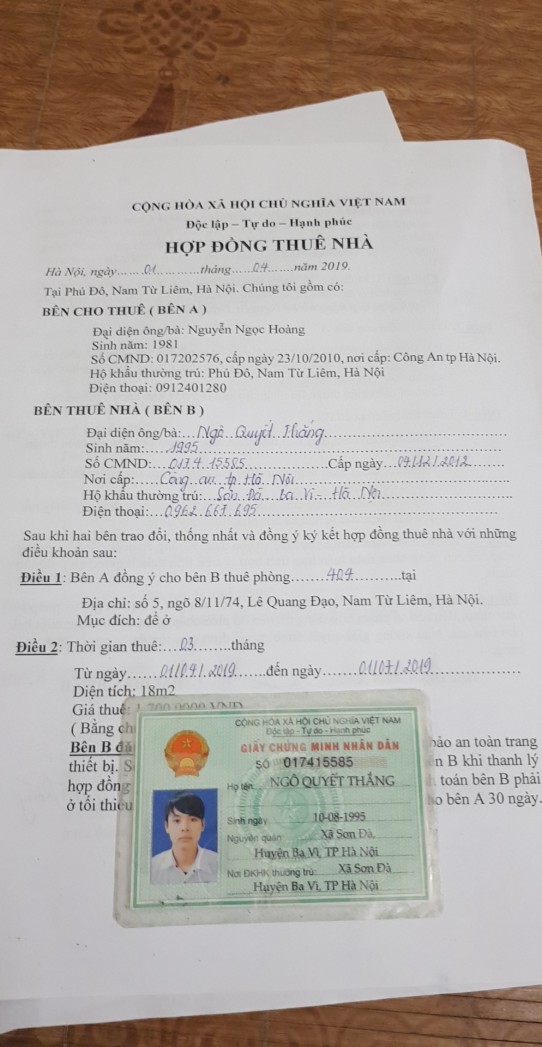 CỘNG HÒA XÃ HỘI CHỦ NGHĨA VIỆT NAM
Độc lập – Tự do – Hạnh phúc
HỢP ĐỒNG THUÊ NHÀ
Hà Nội, ngày......01.............tháng.....04.......năm 2019.
Tại Phú Đô, Nam Từ Liêm, Hà Nội. Chúng tôi gồm có:
BÊN CHO THUÊ ( BÊN A )
Đại diện ông/bà: Nguyễn Ngọc Hoàng
Sinh năm: 1981
Số CMND: 017202576, cấp ngày 23/10/2010, nơi cấp: Công An tp Hà Nội.
Hộ khẩu thường trú: Phú Đô, Nam Từ Liêm, Hà Nội
Điện thoại: 0912401280
BÊN THUÊ NHÀ ( BÊN B )
Đại diện ông/bà:...Ngô Quyết Thắng
Sinh năm:....1995
Số CMND:...017.4.15585............Cấp ngày...04/12/2012
Nơi cấp:.....Công an tp Hà Nội
Hộ khẩu thường trú:...Sơn Đà Ba Vì - Hà Nội
Điện thoại:...0962.667.695
Sau khi hai bên trao đổi, thống nhất và đồng ý ký kết hợp đồng thuê nhà với những
điều khoản sau:
Điều 1: Bên A đồng ý cho bên B thuê phòng.......404...........tại
Địa chỉ: số 5, ngõ 8/11/74, Lê Quang Đạo, Nam Từ Liêm, Hà Nội.
Mục đích: để ở
Điều 2: Thời gian thuê:...03........tháng
Từ ngày......01/04/2019......đến ngày......01/07/2019
Diện tích: 18m2
Giá thuê: 1.700.0000 VNĐ
( Bằng ch
Bên B đã
bảo an toàn trang
thiết bị. S
n B khi thanh lý
hợp đồng
toán bên B phải
ở tối thiểu
o bên A 30 ngày.
CỘNG HÒA XÃ HỘI CHỦ NGHĨA VIỆT NAM
Độc lập - Tự do - Hạnh phúc
GIẤY CHỨNG MINH NHÂN DÂN
SỐ 017415585
Họ tên: NGÔ QUYẾT THẮNG
Sinh ngày 10-08-1995
Nguyên quán Xã Sơn Đà,
Huyện Ba Vì, TP Hà Nội
Nơi ĐKHK thường trú Xã Sơn Đà
Huyện Ba Vì, TP Hà Nội